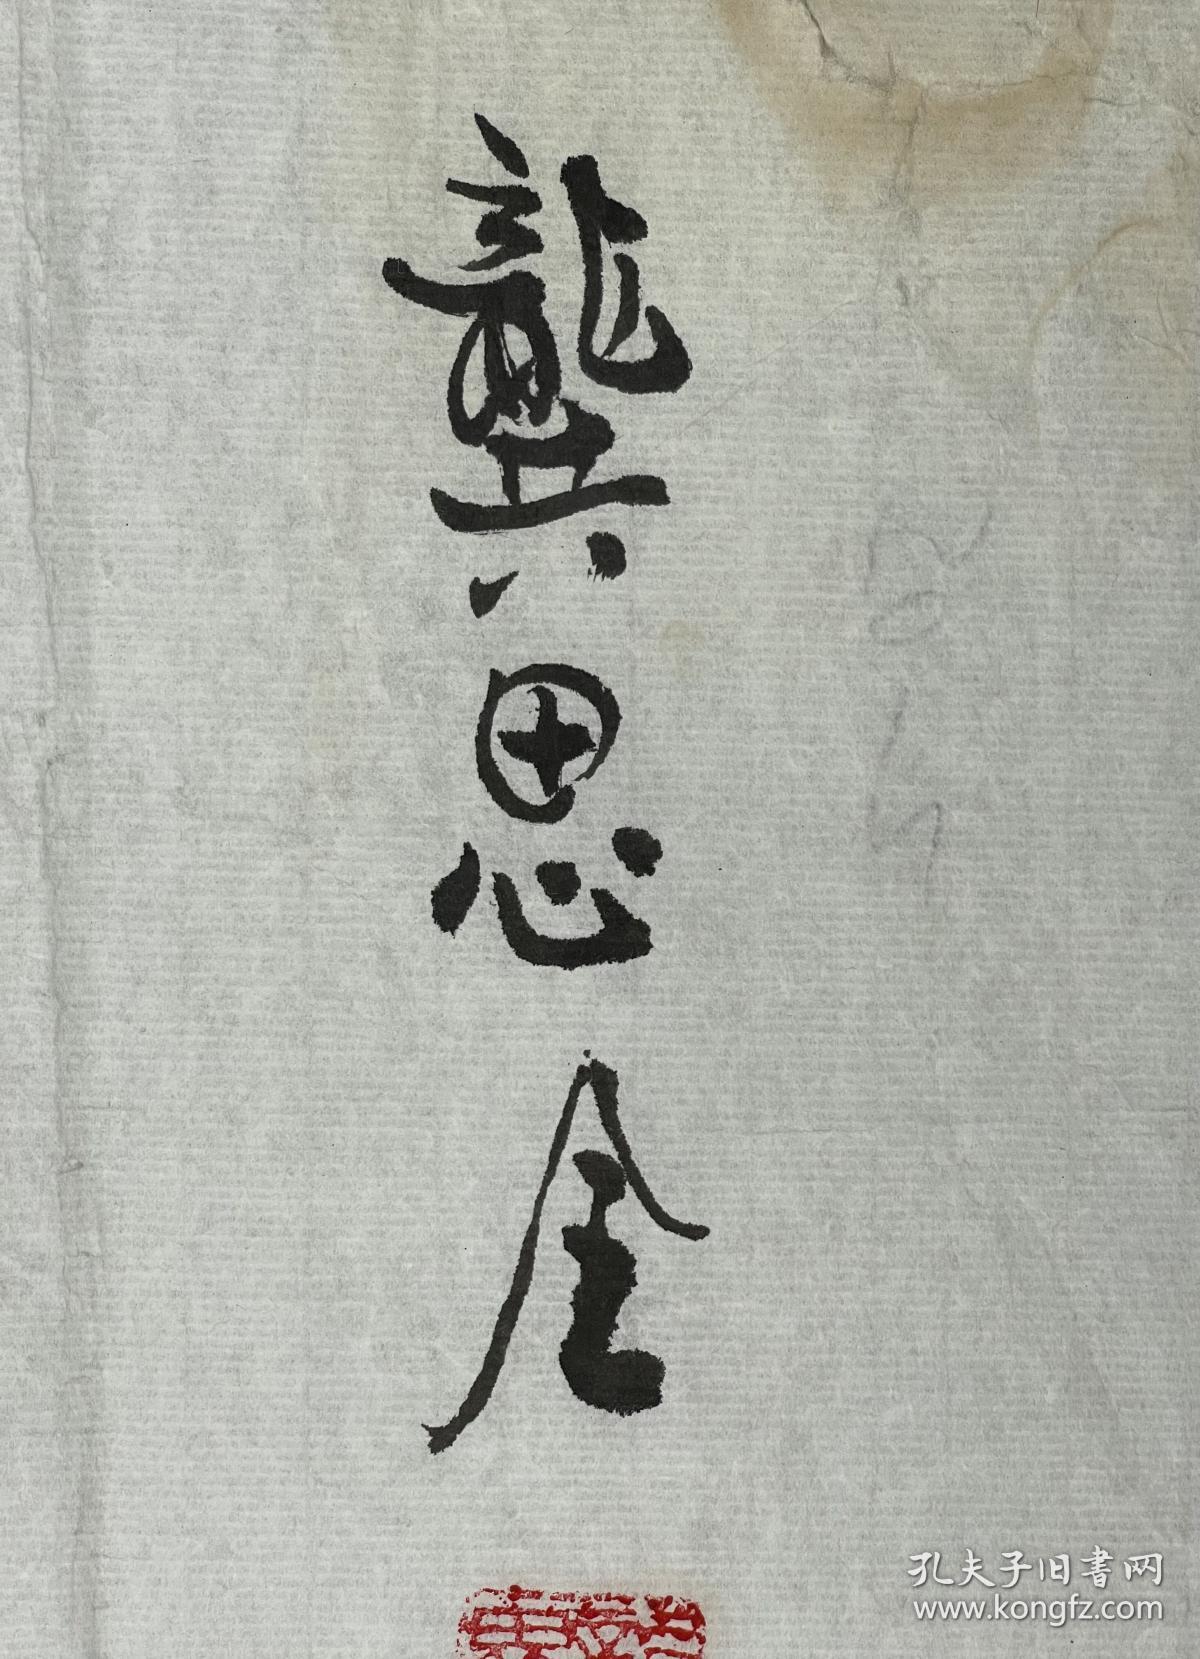 龔思全
孔夫子旧书网
www.kongfz.com